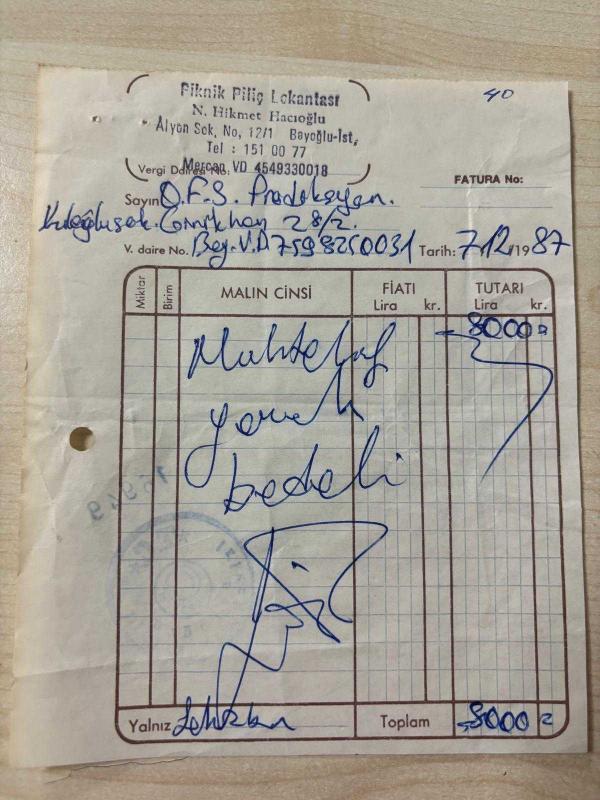 40
Piknik Piliç Lokantası
N. Hikmet Hacıoğlu
Alyon Sok, No, 12/1 Beyoğlu-İst,
Tel : 151 00 77
Mercan VD 4549330018
Vergi Dairesi No:
FATURA No:
Sayın Ö.F.S. Prodoksyon.
28/2.
V. daire No. Bey. V.D 7598250031 Tarih: 7/12/1987
Miktar Birim MALIN CİNSİ FİATI TUTARI
Lira kr. Lira kr.
Muhtelif 8000
yemek
bedeli
Yalnız Sekizbin Toplam 8000